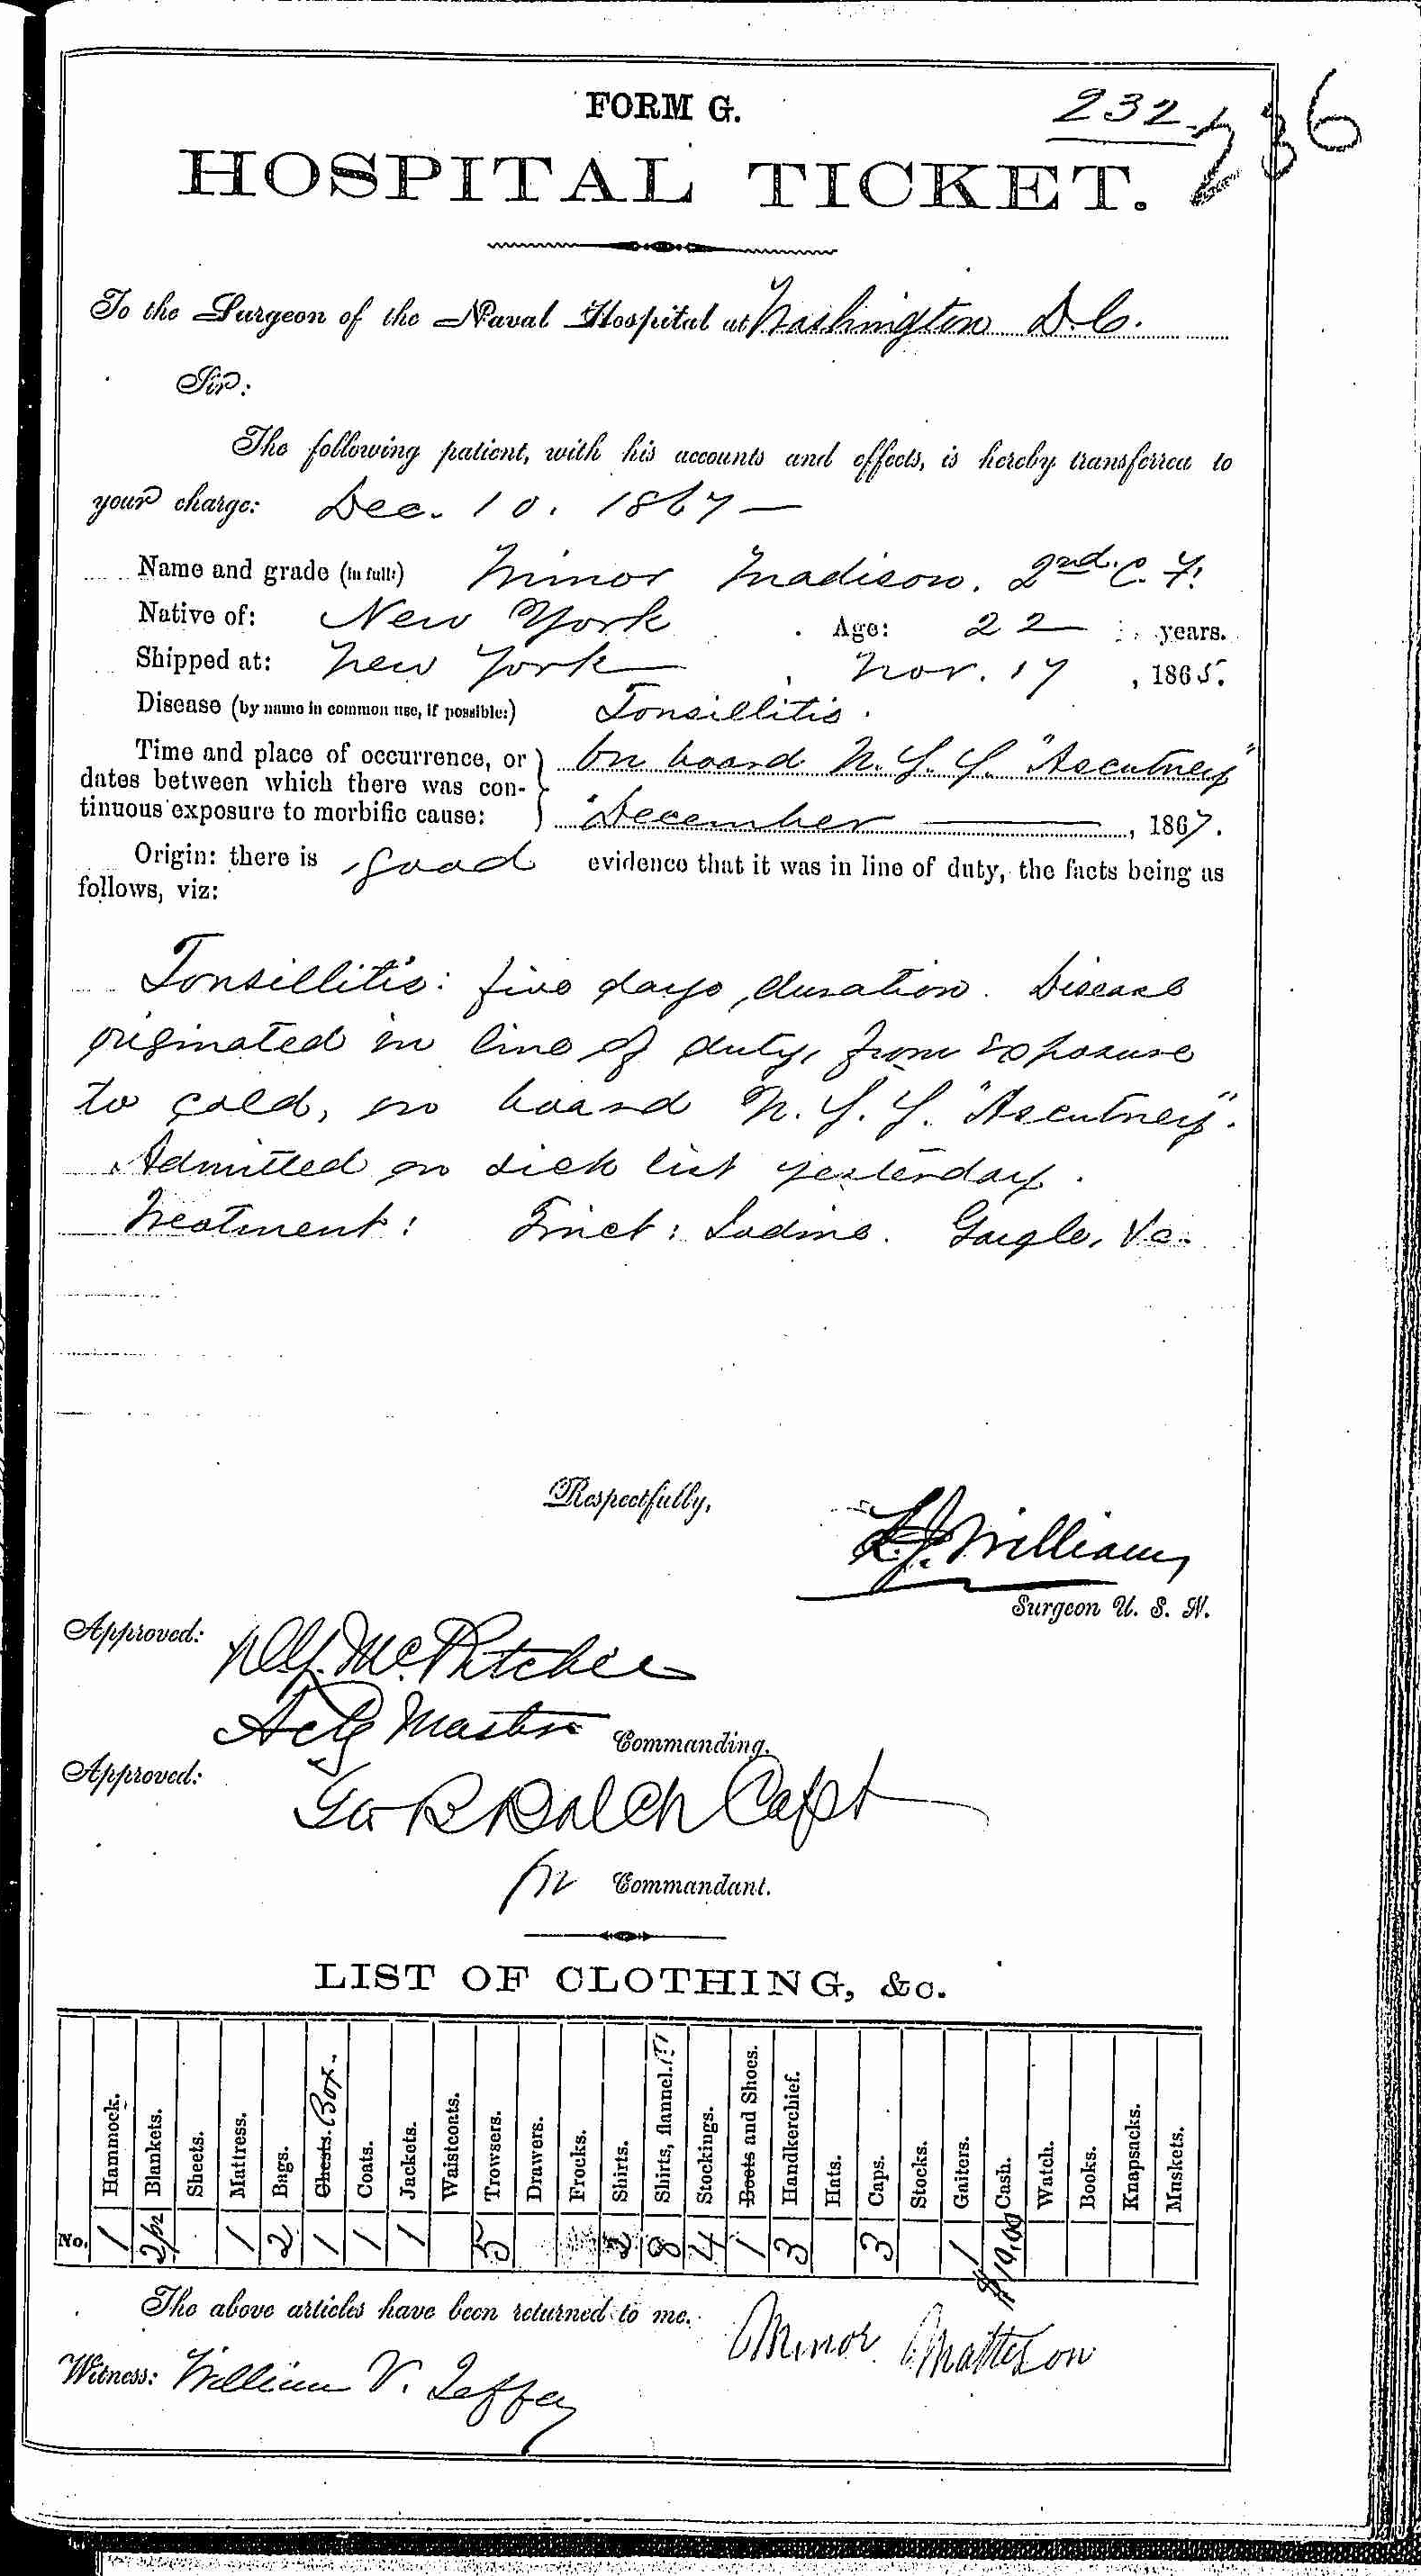 FORM G.
232
236
HOSPITAL TICKET.
To the Surgeon of the Naval Hospital at Washington D.C.
Sir:
The following patient, with his accounts and effects, is hereby transferred to
your charge: Dec. 10. 1867 —
Name and grade (in full:) Minor Madison. 2nd. C. F.
Native of: New York . Age: 22 years.
Shipped at: New York , Nov. 17 , 1865.
Disease (by name in common use, if possible:) Tonsillitis.
Time and place of occurrence, or On board N. Y. Y. "Ascutney"
dates between which there was con-
tinuous exposure to morbific cause: December — , 1867.
Origin: there is good evidence that it was in line of duty, the facts being as
follows, viz:
Tonsillitis: five days, duration. Disease
originated in line of duty, from exposure
to cold, on board N. Y. Y. "Ascutney".
Admitted on sick list yesterday.
Treatment: Tinct: Iodine. Gargle, &c.
Respectfully,
L.J. Williams
Surgeon U. S. N.
Approved: McRitchie
Actg Master Commanding.
Approved: Geo B Balch Capt
for Commandant.
LIST OF CLOTHING, &c.
Hammock. Blankets. Sheets. Mattress. Bags. Chests. Box. Coats. Jackets. Waistcoats. Trowsers. Drawers. Frocks. Shirts. Shirts, flannel. Stockings. Boots and Shoes. Handkerchief. Hats. Caps. Stocks. Gaiters. Cash. Watch. Books. Knapsacks. Muskets.
No. 1 2/pr 1 2 1 1 1 5 2 8 4 1 3 3 1 $19.00
The above articles have been returned to me. Minor Matteson
Witness: William V. Jeffey